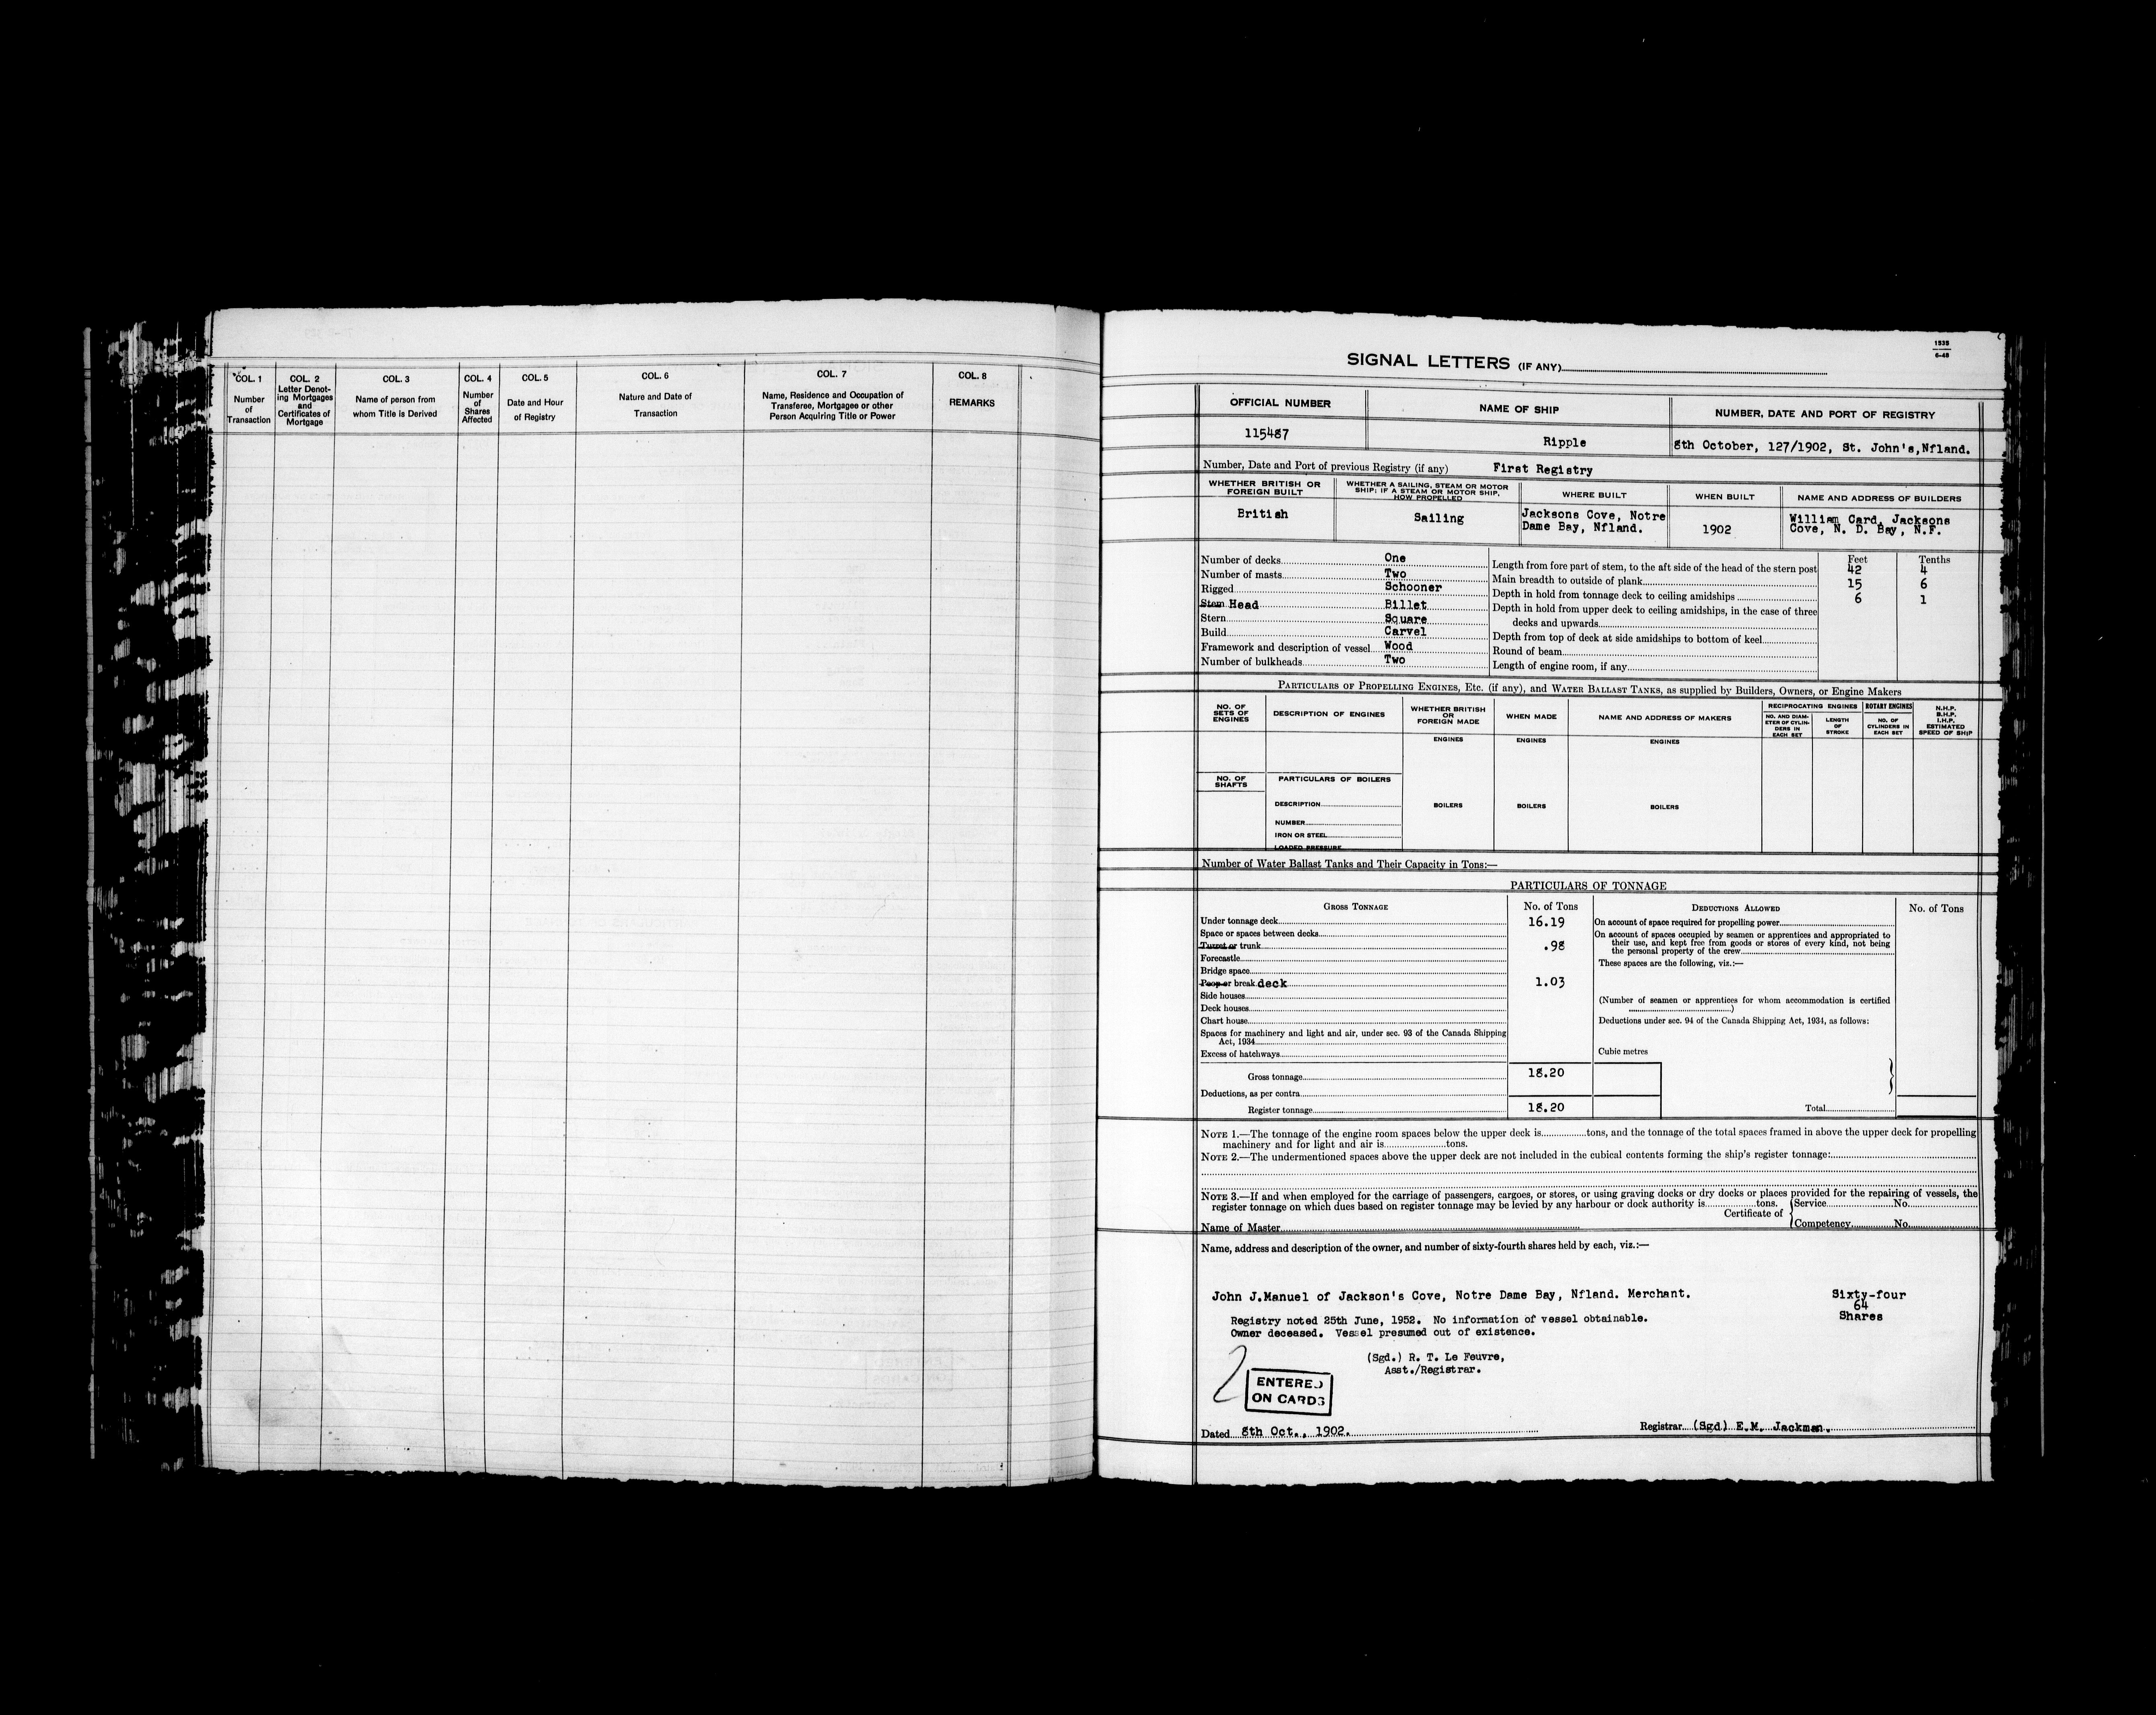 COL. 1
Number
of
Transaction
COL. 2
Letter Denot-
ing Mortgages
and
Certificates of
Mortgage
COL. 3
Name of person from
whom Title is Derived
COL. 4
Number
of
Shares
Affected
COL. 5
Date and Hour
of Registry
COL. 6
Nature and Date of
Transaction
COL. 7
Name, Residence and Occupation of
Transferee, Mortgagee or other
Person Acquiring Title or Power
COL. 8
REMARKS
1535
6-48
SIGNAL LETTERS (IF ANY)
OFFICIAL NUMBER
NAME OF SHIP
NUMBER, DATE AND PORT OF REGISTRY
115487
Ripple
8th October, 127/1902, St. John's,Nfland.
Number, Date and Port of previous Registry (if any) First Registry
WHETHER BRITISH OR
FOREIGN BUILT
WHETHER A SAILING, STEAM OR MOTOR
SHIP; IF A STEAM OR MOTOR SHIP,
HOW PROPELLED
WHERE BUILT
WHEN BUILT
NAME AND ADDRESS OF BUILDERS
British
Sailing
Jacksons Cove, Notre
Dame Bay, Nfland.
1902
William Card, Jacksons
Cove, N. D. Bay, N.F.
Number of decks One
Number of masts Two
Rigged Schooner
Stem Head Billet
Stern Square
Build Carvel
Framework and description of vessel Wood
Number of bulkheads Two
Feet Tenths
Length from fore part of stem, to the aft side of the head of the stern post 42 4
Main breadth to outside of plank 15 6
Depth in hold from tonnage deck to ceiling amidships 6 1
Depth in hold from upper deck to ceiling amidships, in the case of three
decks and upwards
Depth from top of deck at side amidships to bottom of keel
Round of beam
Length of engine room, if any
PARTICULARS OF PROPELLING ENGINES, ETC. (if any), and WATER BALLAST TANKS, as supplied by Builders, Owners, or Engine Makers
NO. OF
SETS OF
ENGINES
DESCRIPTION OF ENGINES
WHETHER BRITISH
OR
FOREIGN MADE
WHEN MADE
NAME AND ADDRESS OF MAKERS
RECIPROCATING ENGINES
NO. AND DIAM-
ETER OF CYLIN-
DERS IN
EACH SET
LENGTH
OF
STROKE
ROTARY ENGINES
NO. OF
CYLINDERS IN
EACH SET
N.H.P.
B.H.P.
I.H.P.
ESTIMATED
SPEED OF SHIP
ENGINES
ENGINES
ENGINES
NO. OF
SHAFTS
PARTICULARS OF BOILERS
DESCRIPTION
NUMBER
IRON OR STEEL
LOADED PRESSURE
BOILERS
BOILERS
BOILERS
Number of Water Ballast Tanks and Their Capacity in Tons:—
PARTICULARS OF TONNAGE
GROSS TONNAGE
No. of Tons
Under tonnage deck 16.19
Space or spaces between decks
Turret or trunk .98
Forecastle
Bridge space
Poop or break deck 1.03
Side houses
Deck houses
Chart house
Spaces for machinery and light and air, under sec. 93 of the Canada Shipping
Act, 1934
Excess of hatchways
Gross tonnage 18.20
Deductions, as per contra
Register tonnage 18.20
DEDUCTIONS ALLOWED
No. of Tons
On account of space required for propelling power
On account of spaces occupied by seamen or apprentices and appropriated to
their use, and kept free from goods or stores of every kind, not being
the personal property of the crew
These spaces are the following, viz.:—
(Number of seamen or apprentices for whom accommodation is certified
)
Deductions under sec. 94 of the Canada Shipping Act, 1934, as follows:
Cubic metres
Total
NOTE 1.—The tonnage of the engine room spaces below the upper deck is tons, and the tonnage of the total spaces framed in above the upper deck for propelling
machinery and for light and air is tons.
NOTE 2.—The undermentioned spaces above the upper deck are not included in the cubical contents forming the ship's register tonnage:
NOTE 3.—If and when employed for the carriage of passengers, cargoes, or stores, or using graving docks or dry docks or places provided for the repairing of vessels, the
register tonnage on which dues based on register tonnage may be levied by any harbour or dock authority is tons.
Certificate of
Service No.
Competency No.
Name of Master
Name, address and description of the owner, and number of sixty-fourth shares held by each, viz.:—
John J.Manuel of Jackson's Cove, Notre Dame Bay, Nfland. Merchant.
Sixty-four
64
Shares
Registry noted 25th June, 1952. No information of vessel obtainable.
Owner deceased. Vessel presumed out of existence.
(Sgd.) R. T. Le Feuvre,
Asst./Registrar.
2
ENTERED
ON CARDS
Dated 8th Oct., 1902.
Registrar (Sgd) E.M. Jackman.